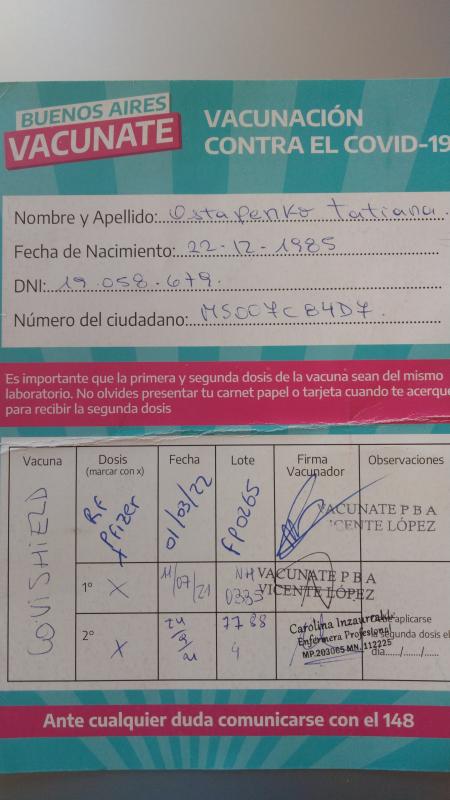 BUENOS AIRES
VACUNATE
VACUNACIÓN
CONTRA EL COVID-19
Nombre y Apellido: Ostapenko Tatiana.
Fecha de Nacimiento: 22-12-1985
DNI: 19.058.679.
Número del ciudadano: MS007CB4D7.
Es importante que la primera y segunda dosis de la vacuna sean del mismo
laboratorio. No olvides presentar tu carnet papel o tarjeta cuando te acerque
para recibir la segunda dosis
Vacuna Dosis (marcar con x) Fecha Lote Firma Vacunador Observaciones
COVISHIELD
RF Pfizer x 01/03/22 FP0265 VACUNATE P B A
VICENTE LÓPEZ
1° X 11/07/21 NH 0335 VACUNATE P B A
VICENTE LÓPEZ
2° X 24/9/21 7788 4 Carolina Inzaurralde
Enfermera Profesional
MP.203065-MN. 112225
aplicarse
segunda dosis el
día....../......./......
Ante cualquier duda comunicarse con el 148